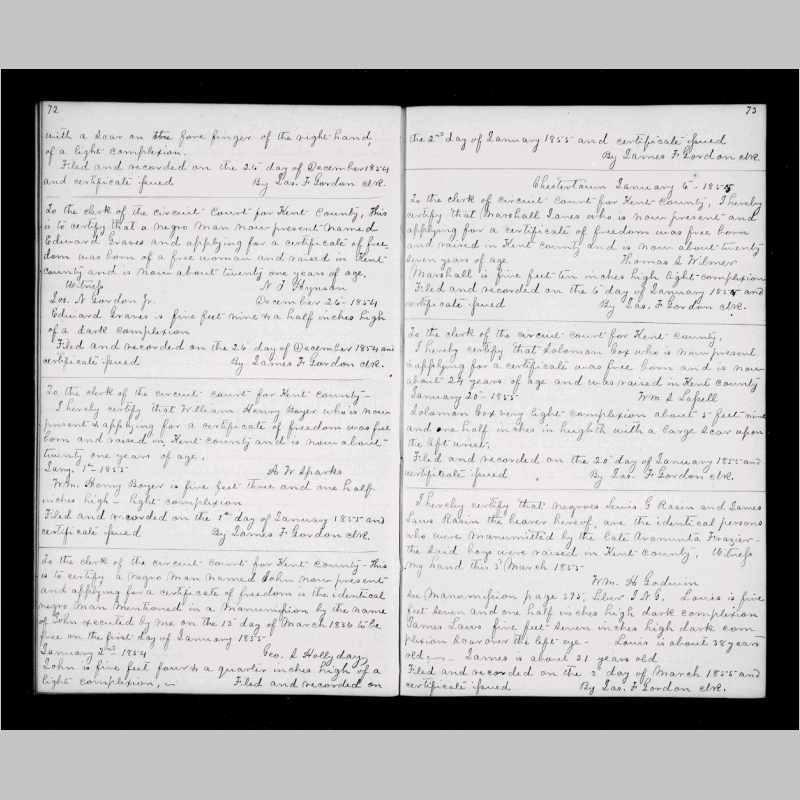 72
with a scar on the fore finger of the right hand,
of a light complexion.
Filed and recorded on the 26 day of December 1854
and certificate issued By Jas. F. Gordon clk.
To the clerk of the circuit Court for Kent County, This
is to certify that a negro man now present named
Edward Graves and applying for a certificate of free
dom was born of a free woman and raised in Kent
County and is now about twenty one years of age.
Witness N T Hynson
Jos. N Gordon Jr. December 26 - 1854
Edward Graves is five feet nine & a half inches high
of a dark complexion
Filed and recorded on the 26 day of December 1854 and
certificate issued By James F Gordon clk.
To the clerk of the circuit court for Kent County -
I hereby certify that William Henry Boyer who is now
present & applying for a certificate of freedom was free
born and raised in Kent County and is now about
twenty one years of age.
Jany. 1st 1855 A W Sparks
Wm. Henry Boyer is five feet three and one half
inches high - light complexion
Filed and recorded on the 1st day of January 1855 and
certificate issued By James F Gordon clk.
To the clerk of the circuit court for Kent County - this
is to certify a negro man named John now present
and applying for a certificate of freedom is the identical
negro man mentioned in a manumission by the name
of John executed by me on the 12 day of March 1836 to be
free on the first day of January 1855
January 2nd 1854 Geo. S Hollyday
John is five feet four & a quarter inches high of a
light complexion. Filed and recorded on
73
the 2nd day of January 1855 and certificate issued
By James F Gordon clk.
Chestertown January 6th 1855
To the clerk of circuit court for Kent County, I hereby
certify that Marshall Janes who is now present and
applying for a certificate of freedom was free born
and raised in Kent County and is now about twenty
seven years of age Thomas S Wilmer
Marshall is five feet ten inches high light complexion
Filed and recorded on the 6 day of January 1855 and
certificate issued By Jas. F Gordon clk.
To the clerk of the circuit court for Kent County.
I hereby certify that Solomon Cox who is now present
applying for a certificate was free born and is now
about 24 years of age and was raised in Kent County
January 20 - 1855 Wm S Lassell
Solomon Cox very light complexion about 5 feet nine
and one half inches in heighth with a large scar upon
the left wrist.
Filed and recorded on the 20 day of January 1855 and
certificate issued By Jas. F Gordon clk.
I hereby certify that negroes Lewis G Rasin and James
Laws Rasin the bearer hereof, are the identical persons
who were manumitted by the late Araminta Frazier -
the said boys were raised in Kent County. Witness
my hand this 3 March 1855
Wm. H Godwin
See Manumission page 575, Liber J.N.G. Louis is five
feet seven and one half inches high dark complexion
James Laws five feet seven inches high dark com
plexion scar over the left eye - Louis is about 38 years
old - James is about 21 years old
Filed and recorded on the 3 day of March 1855 and
certificate issued By Jas. F. Gordon clk.